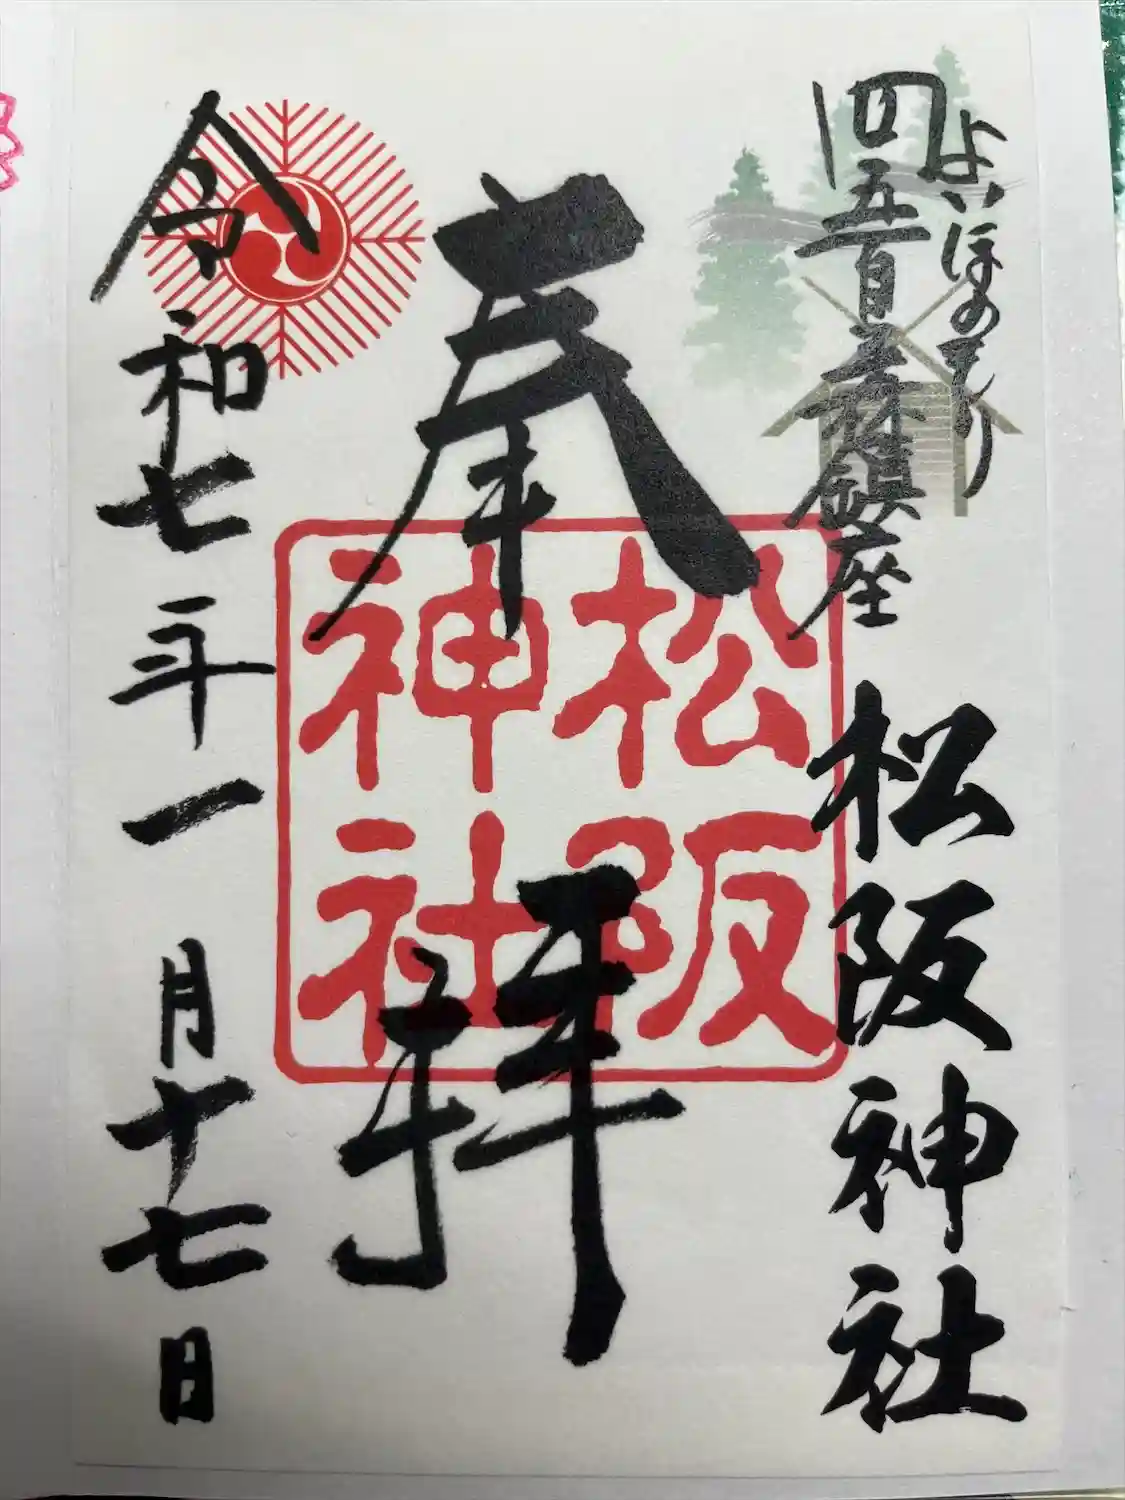 よいほのもり
四五百之森鎮座
松阪神社
奉拝
松阪
神社
令和七年一月十七日